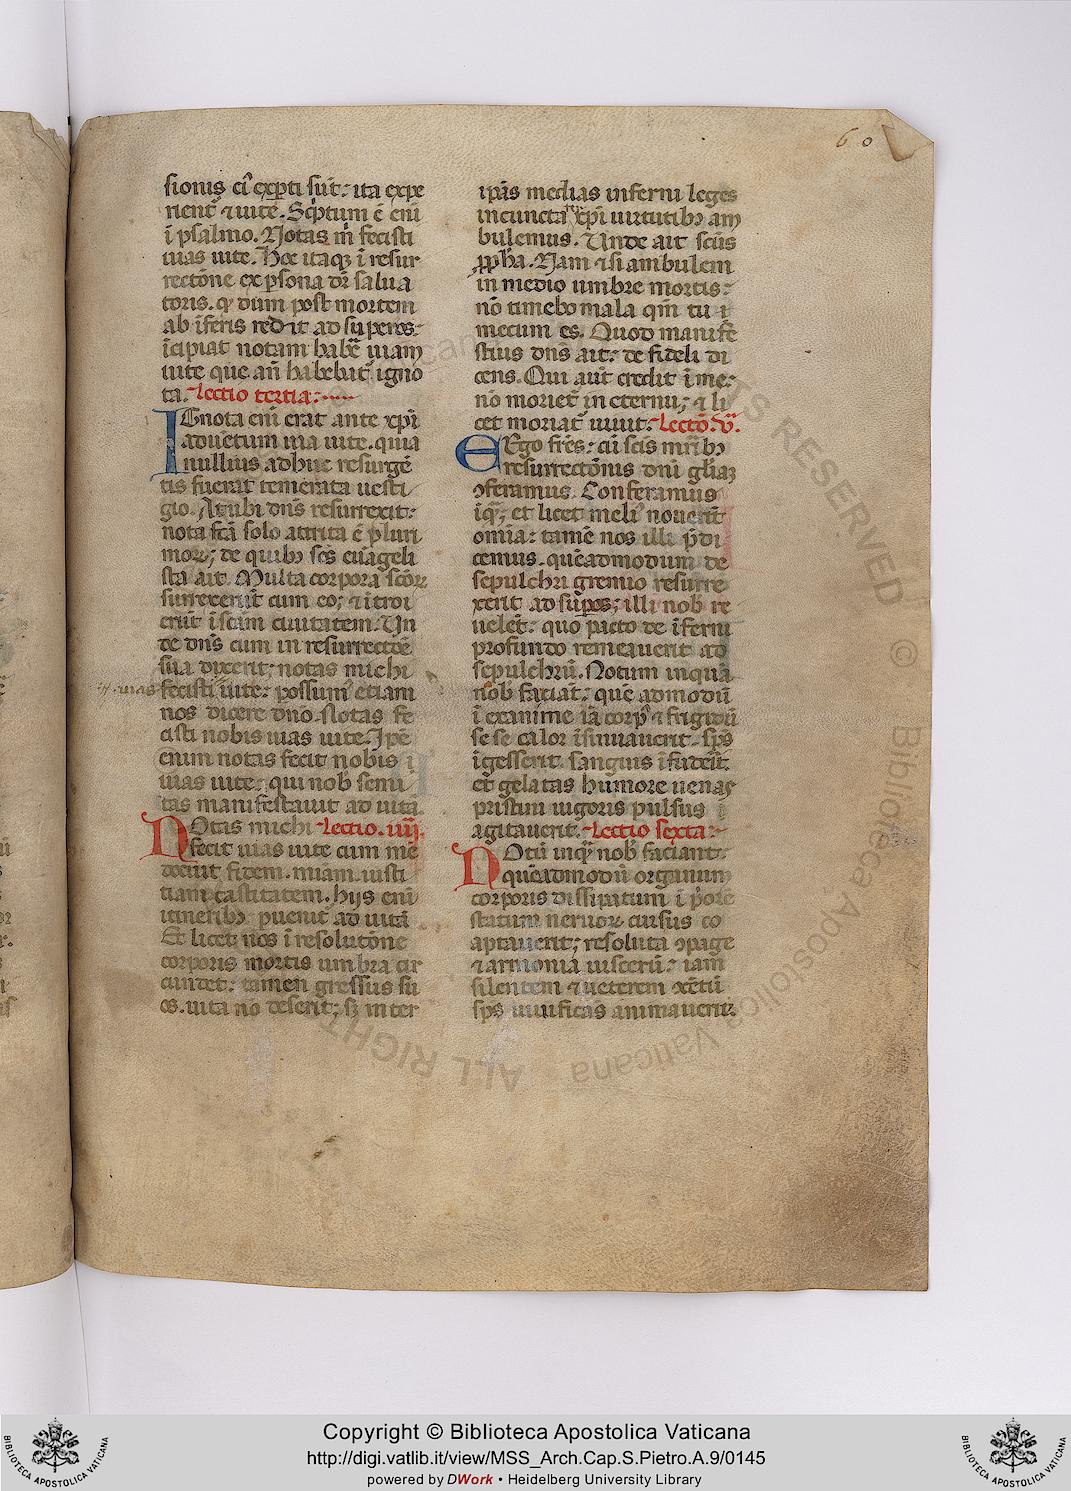 60
sionis cū exꝑti sūt: ita expe
rient̄ ⁊ uite. Sc̄ptum ē eni
ī psalmo. Notas m̄ fecisti
uias uite. Hoc itaqꝫ ī resur
rectōne ex ꝑsona dn̄i salua
toris. qꝛ dum post mortem
ab īferis redit ad superos:
īcipiat notam habē uiam
uite que an̄ habebat̄ igno
ta. Lectio tertia:
IGnota eni erat ante xp̄i
aduētum uia uite. quia
nullius adhuc resurgē
tis fuerat temerata uesti
gio. At ubi dn̄s resurrexit:
nota fc̄a solo attrita ē pluri
moꝝ; de quibꝫ sc̄s euāgeli
sta ait. Multa corpora sc̄oꝝ
surrexerūt cum eo; ⁊ ītroi
erūt ī sc̄am ciuitatem. Un
de dn̄s cum in resurrectōe
sua dixerit; notas michi
fecisti uite: possum̄ etiam
uias
nos dicere dn̄o. Notas fe
cisti nobis uias uite. Ipē
enim notas fecit nobis ī
uias uite; qui nob̄ semi
tas manifestauit ad uitā
NOtas michi Lectio. iiij.
fecit uias uite cum me
docuit fidem. miam. iusti
tiam castitatem. hijs eni
itineribꝫ puenit̄ ad uitā
Et licet nos ī resolutōne
corporis mortis umbra cir
cūdet: tamen gressus su
os. uita nō deserit; sꝫ inter
ipas medias inferni leges
incuncta xp̄i uirtutibꝫ am
bulemus. Unde ait sc̄us
ꝓpha. Nam ⁊ si ambulem
in medio umbre mortis:
nō timebo mala qm̄ tu ī
mecum es. Quod manife
stius dn̄s ait: de fideli di
cens. Qui aut̄ credit ī me:
nō moriet̄ in eternu; ⁊ li
cet moriat̄ uiuit: Lectō. v̄.
ERgo fr̄es: cū sc̄is mr̄ibꝫ
resurrectōnis dn̄i gl̄iaꝫ
ꝯferamus. Conferamus
īqꝫ; et licet meli noue rīt
omīa: tamē nos illi p̄di
cemus. quēadmodum de
sepulchri gremio resurre
xerit ad suꝑos; illi nob̄ re
uelet̄: quo pacto de īferni
profundo remeauerit ad
sepulchrū. Notum inquā
nob̄ faciat̄: quē admodū
ī exanime iā corp̄ ⁊ frigidū
se se calor īsinuauerit. sps̄
īgesserit. sanguis īfuderit:
et gelatas humore uenas
pristini uigoris pulsus ī
agitauerit. Lectio sexta:
NOtū inqꝫ nob̄ faciant:
quēadmodū organum
corporis dissipatum ī p̄orē
statum neruoꝝ cursus co
aptauerit; resoluta ꝯpage
⁊ armonia uiscerū: iam
silentem ⁊ ueterem xcētū
sps̄ uiuificās animauerit.
Copyright © Biblioteca Apostolica Vaticana
http://digi.vatlib.it/view/MSS_Arch.Cap.S.Pietro.A.9/0145
powered by DWork • Heidelberg University Library
BIBLIOTECA APOSTOLICA VATICANA
BIBLIOTECA APOSTOLICA VATICANA
ALL RIGHTS RESERVED © Biblioteca Apostolica Vaticana